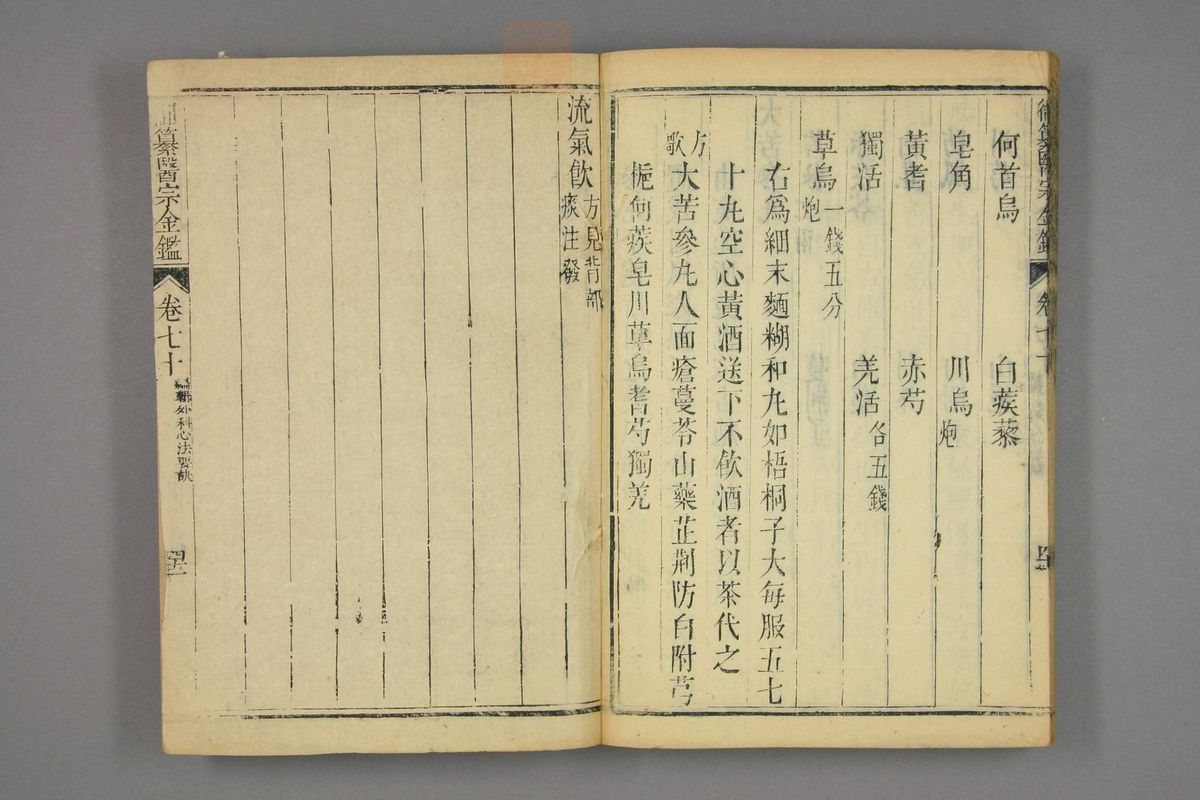 御纂醫宗金鑑 卷七十
何首烏 白蒺藜
皂角 川烏炮
黃耆 赤芍
獨活 羌活各五錢
草烏一錢五分炮
右爲細末麵糊和丸如梧桐子大每服五七
十丸空心黃酒送下不飲酒者以茶代之
方歌
大苦參丸人面瘡蔓苓山藥芷荊防白附芎
梔何蒺皂川草烏耆芍獨羌
流氣飲方見背部痰注發
御纂醫宗金鑑 卷七十 編輯外科心法要訣